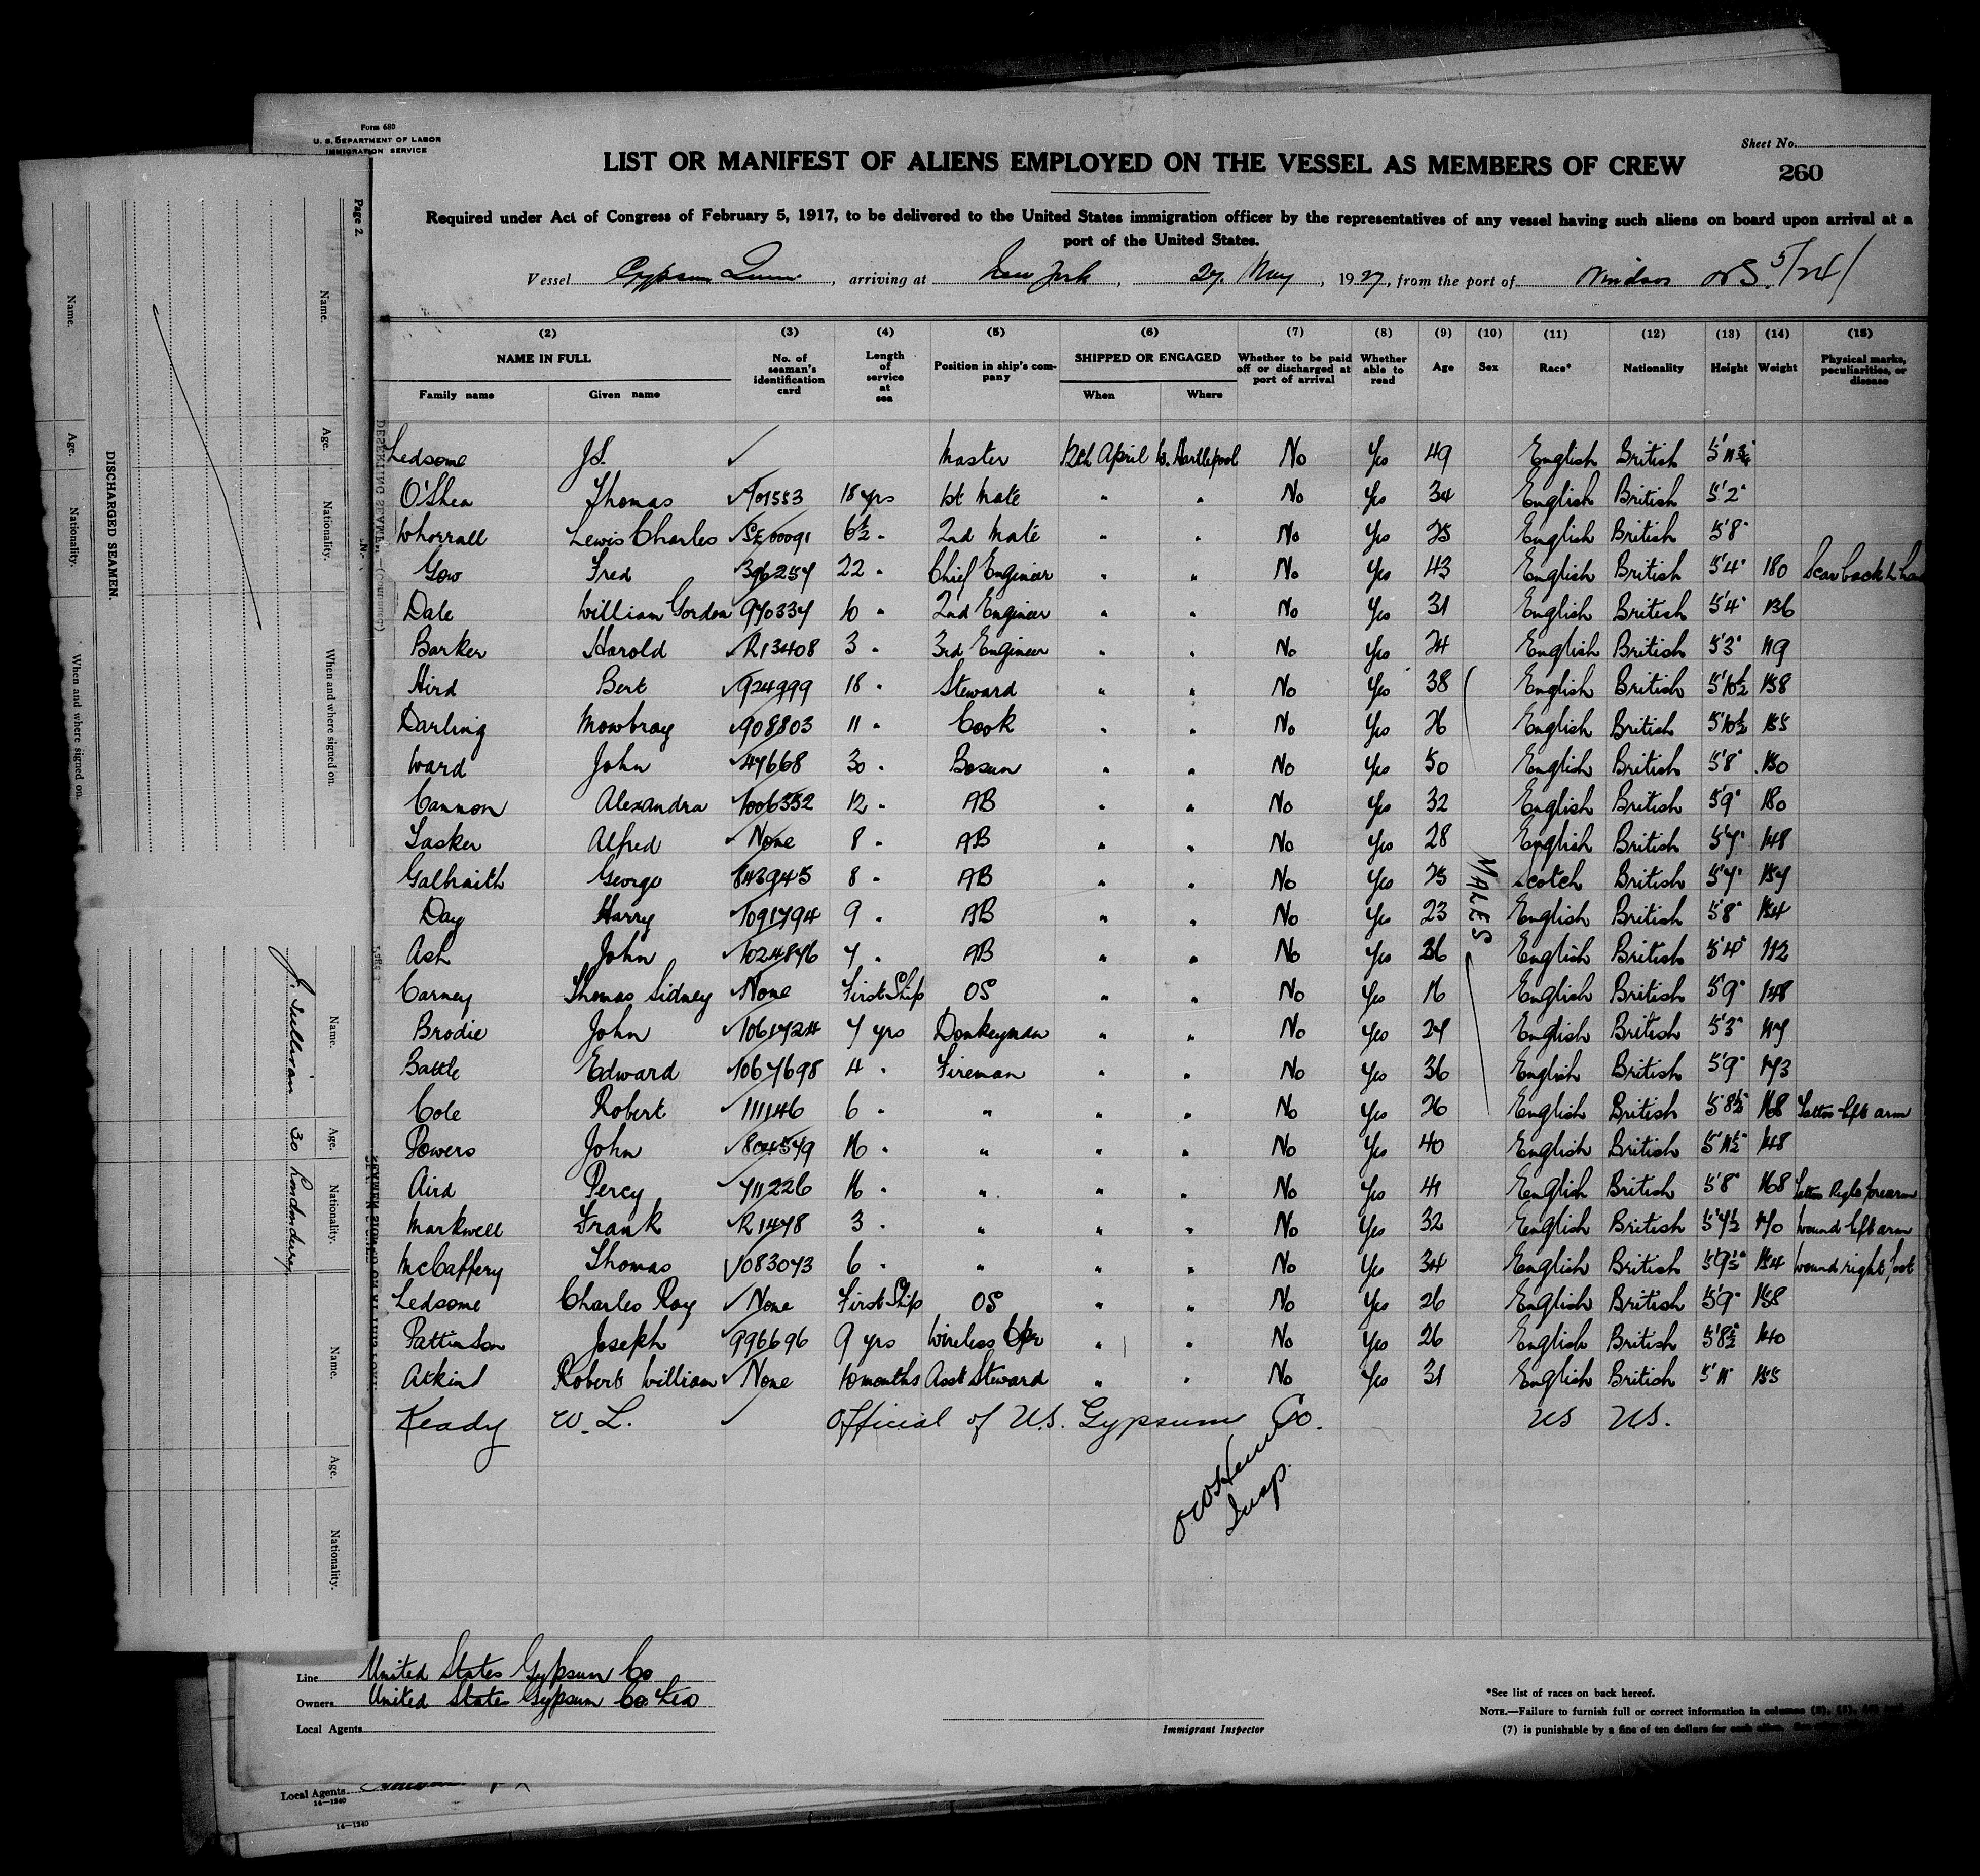 Form 680
U. S. DEPARTMENT OF LABOR
IMMIGRATION SERVICE
Sheet No.
LIST OR MANIFEST OF ALIENS EMPLOYED ON THE VESSEL AS MEMBERS OF CREW
260
Required under Act of Congress of February 5, 1917, to be delivered to the United States immigration officer by the representatives of any vessel having such aliens on board upon arrival at a
port of the United States.
Vessel Gypsum Queen, arriving at New York, 27 May, 1927, from the port of Windsor NS 5/24/
(2) (3) (4) (5) (6) (7) (8) (9) (10) (11) (12) (13) (14) (15)
NAME IN FULL No. of seaman's identification card Length of service at sea Position in ship's company SHIPPED OR ENGAGED Whether to be paid off or discharged at port of arrival Whether able to read Age Sex Race* Nationality Height Weight Physical marks, peculiarities, or disease
Family name Given name When Where
Ledsome J.S. ✓ Master 12th April W. Hartlepool No Yes 49 English British 5'11¾"
O'Shea Thomas ✓ 18 yrs 1st Mate " " No Yes 34 English British 5'2"
Whorrall Lewis Charles ✓ 6½ " 2nd Mate " " No Yes 25 English British 5'8"
Gow Fred 396257 22 " Chief Engineer " " No Yes 43 English British 5'4" 180 Scar back L
Dale William Gordon 970337 10 " 2nd Engineer " " No Yes 31 English British 5'4" 136
Barker Harold ✓R13408 3 " 3rd Engineer " " No Yes 24 English British 5'3" 119
Hird Bert ✓924999 18 " Steward " " No Yes 38 English British 5'10½ 158
Darling Mowbray ✓908803 11 " Cook " " No Yes 26 English British 5'10½ 155
Ward John ✓47668 30 " Bosun " " No Yes 50 English British 5'8" 150
Cannon Alexandra 1006352 12 " AB " " No Yes 32 English British 5'9" 180
Lasker Alfred ✓ None 8 " AB " " No Yes 28 English British 5'7" 148
Galbraith George 843945 8 " AB " " No Yes 25 Scotch British 5'7" 157
Day Harry 1091794 9 " AB " " No Yes 23 English British 5'8" 154
Ash John 1024876 7 " AB " " No Yes 26 English British 5'4" 112
MALES
Carney Thomas Sidney ✓None First Ship OS " " No Yes 16 English British 5'9" 148
Brodie John 1061724 7 yrs Donkeyman " " No Yes 27 English British 5'3" 117
Battle Edward 1067698 4 " Fireman " " No Yes 36 English British 5'9" 173
Cole Robert ✓ 111146 6 " " " " No Yes 26 English British 5'8½" 168 Tattoo left arm
Powers John ✓804579 16 " " " " No Yes 40 English British 5'11½" 148
Aird Percy 711226 16 " " " " No Yes 41 English British 5'8" 168 Tattoo Right forearm
Markwell Frank ✓R1478 3 " " " " No Yes 32 English British 5'7½ 170 Wound left arm
McCaffery Thomas 1083073 6 " " " " No Yes 34 English British 5'9½" 154 Wound right foot
Ledsome Charles Roy ✓ None First Ship OS " " No Yes 26 English British 5'9" 158
Pattinson Joseph 996696 9 yrs Wireless Oper " " No Yes 26 English British 5'8½" 140
Atkind Robert William ✓ None 10 months Asst Steward " " No Yes 31 English British 5'11" 155
Keady W. L. ✓ Official of U.S. Gypsum Co. US US.
Insp.
Line United States Gypsum Co
Owners United States Gypsum Co. Ltd
Local Agents
Immigrant Inspector
*See list of races on back hereof.
NOTE.—Failure to furnish full or correct information in columns
(7) is punishable by a fine of ten dollars for each alien.
Local Agents
14—1240
14—1240
Page 2.
DISCHARGED SEAMEN.
Name. Age. Nationality. When and where signed on.
Name. Age. Nationality. When and where signed on.
Name. Age. Nationality. Name. Age. Nationality.
J. Sullivan 30 Londonderry